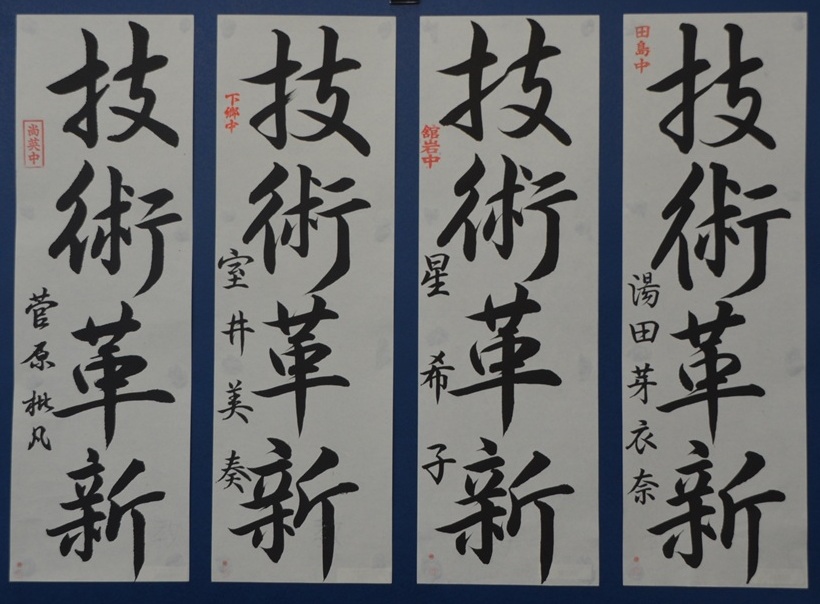 田島中
技術革新
湯田芽衣奈
舘岩中
技術革新
星希子
下郷中
技術革新
室井美奏
尚英中
技術革新
菅原